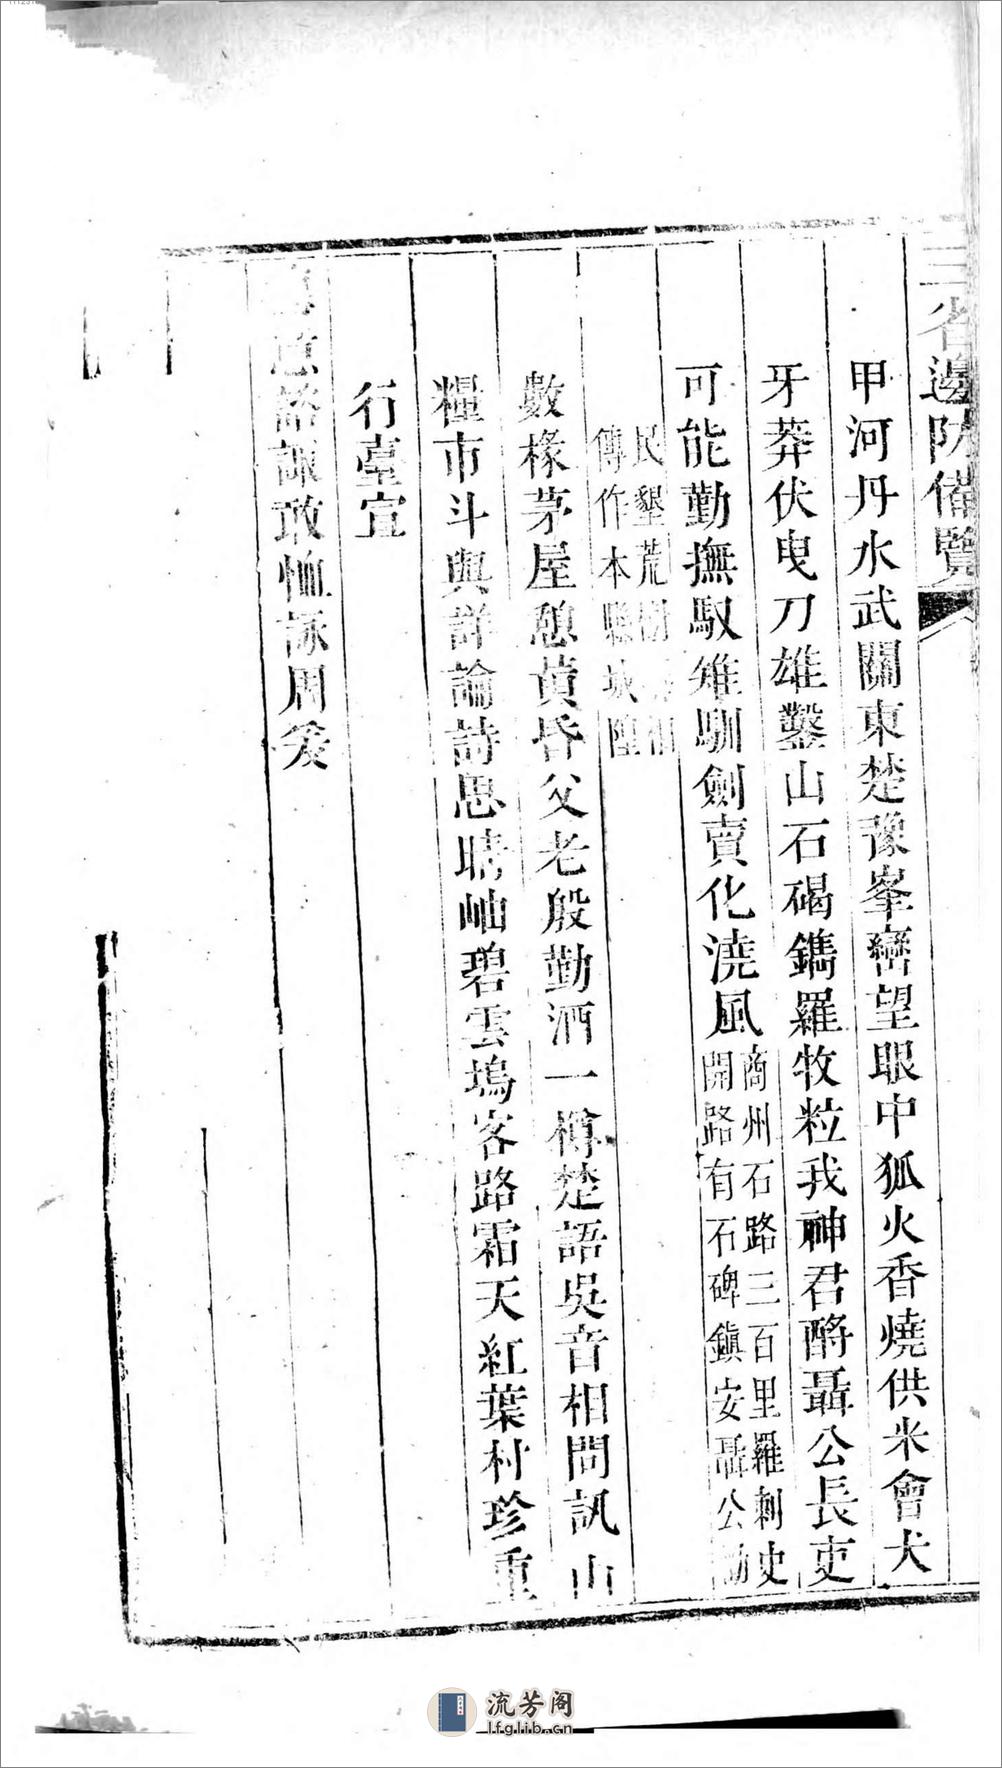 三省邊防備覽
甲河丹水武關東楚豫峯巒望眼中狐火香燒供米會犬
牙莽伏曳刀雄鑿山石碣鐫羅牧粒我神君酹聶公長吏
可能勤撫馭雉馴劍賣化澆風商州石路三百里羅刺史
開路有石碑鎮安聶公勸
民墾荒
傳作本縣城隍
數椽茅屋憩黃昏父老殷勤酒一樽楚語吳音相問訊山
糧市斗與詳論詩思晴岫碧雲塢客路霜天紅葉村珍重
行臺宣
意諮諏敢恤詠周爰
流芳阁
lfglib.cn